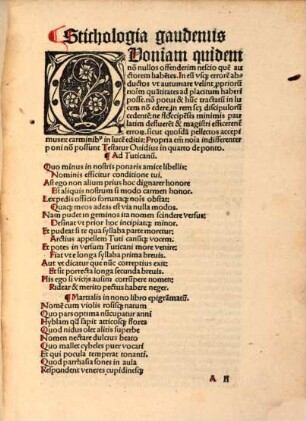 ¶Stichologia gaudentis
QUoniam quidem
nō nullos offenderim nescio quē au
ctorem habētes. In eū vsqꝫ errorē ab
ductos vt autumare velint ꝓpriorū
noīm qualitates ad placitum haberi
posse. nō potui & hūc tractatū in lu
cem nō edere. in rem
cedentē: ne
latim & magistri efficerent
erroꝫ. sicut quosdā pellectos accepi
museꝫ carminibꝰ in lucē editis: Propria em̄ noīa indifferenter
poni nō possunt Testatur Ouidius in quarto de ponto.
¶Ad Tuticanū.
Quo minus in nostris ponaris amice libellis:
Nominis efficitur conditione tui.
Ast ego non alium prius hoc dignarer honore
Et aliquis nostrum si modo carmen honor.
Lex pedis officio fortunaqꝫ nois obstat:
Quaqꝫ meos adeas est via nulla modos.
Nam pudet in geminos ita nomen scindere versus:
Desinat vt prior hoc incipiatqꝫ minor.
Et pudeat si te qua syllaba parte moretur:
Arctius appellem Tuti canumqꝫ vocem.
Et potes in versum Tuticani more venire:
Fiat vt e longa syllaba prima breuis.
Aut vt dicatur que nūc correptius exit:
Et sit porrecta longa secunda breuis.
His ego si vicijs ausim corrūpere nomen:
Ridear & merito pectus habere neger.
¶Martialis in nono libro epigrāmatū.
Nomē cum violis rosisqꝫ natum
Quo pars optima nūcupatur anni
Hyblam qd sapit atticosqꝫ flores
Quod nidos olet alitis superbe
Nomen nectare dulcius beato
Quo mallet cybeles puer vocari
Et qui pocula temperat tonanti.
Quod parrhasia sones in aula
Respondent veneres cupidinesqꝫ
A